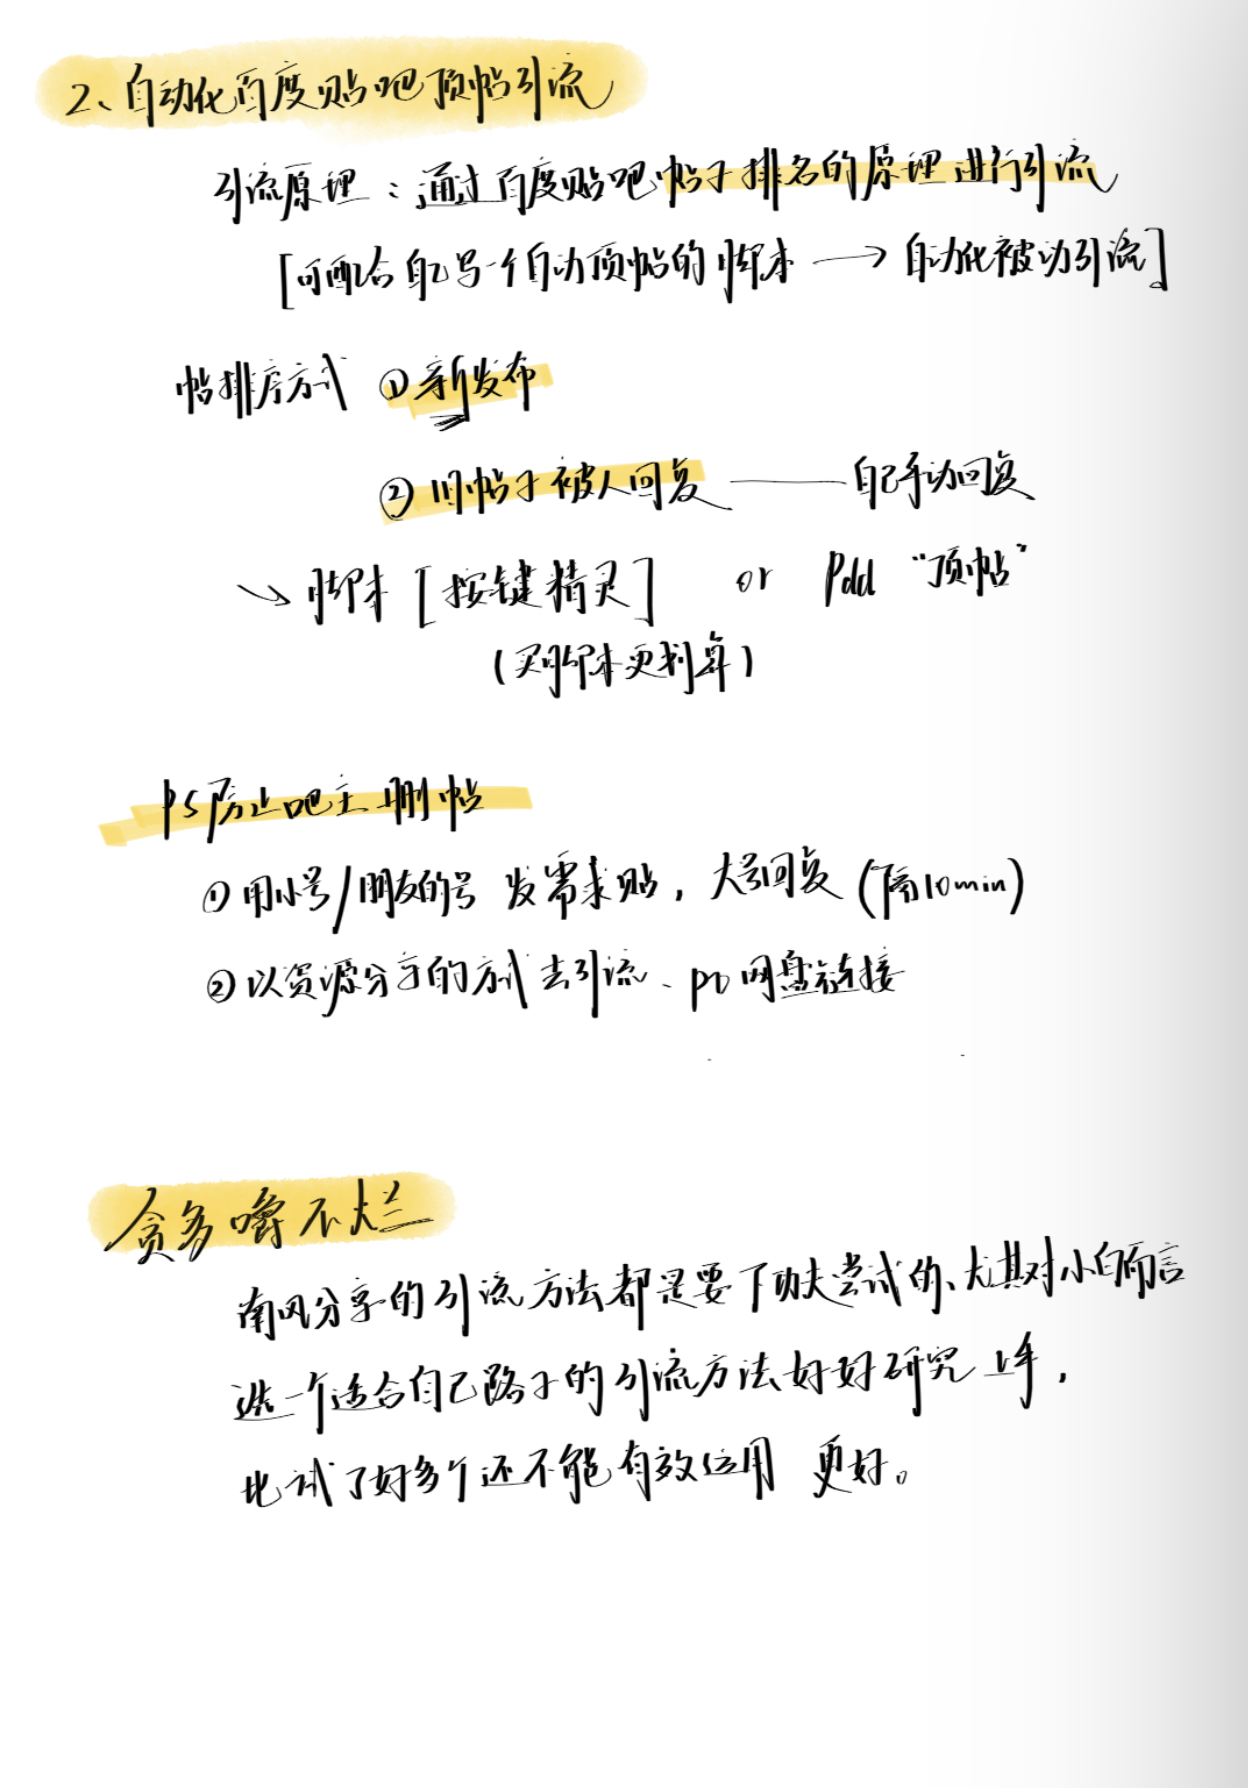 2、自动化百度贴吧顶帖引流
引流原理：通过百度贴吧帖子排名的原理进行引流
[可配合自己写一个自动顶帖的脚本 → 自动化被动引流]
帖排序方式 ①新发布
②旧帖子被人回复 —— 自己手动回复
↘ 脚本 [按键精灵] or Pdd “顶帖”
(买脚本更划算)
PS防止吧主删帖
①用小号/朋友的号 发需求贴，大号回复 (隔10min)
②以资源分享的方式去引流、po网盘链接
贪多嚼不烂
南风分享的引流方法都是要下功夫尝试的、尤其对小白而言
选一个适合自己路子的引流方法好好研究上手，
比试了好多个还不能有效运用 更好。